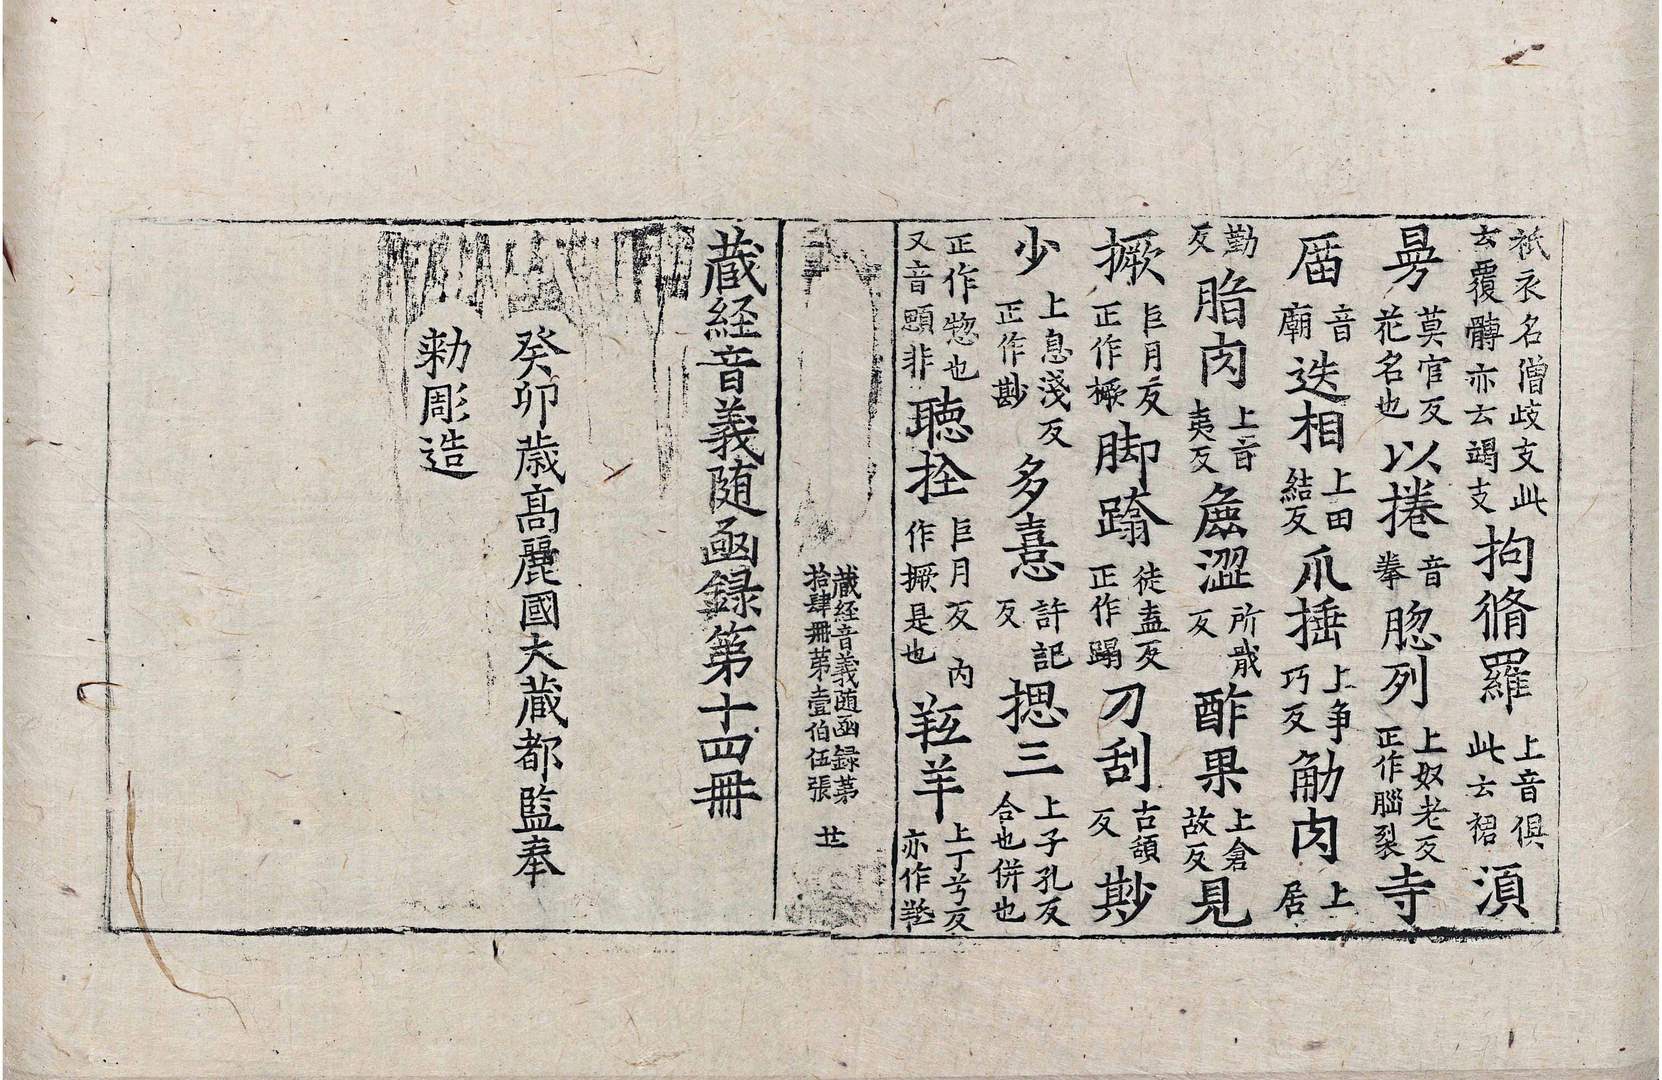 祇衣名僧歧支此云覆髆亦云竭支 拘脩羅 上音俱此云裙 湏
曼 莫官反花名也 以捲 音拳 𦛁列 上奴老反正作腦裂 寺
庿 音廟 迭相 上田結反 爪捶 上爭巧反 觔肉 上居
勤反 脂肉 上音夷反 麁澀 所戢反 酢果 上倉故反 見
撅 巨月反正作橛 脚蹹 徒盍反正作蹋 刀刮 古頟反 尠
少 上息淺反正作尠 多憙 許記反 摠三 上子孔反合也併也
正作惣也又音顋非 聴拴 巨月反丙作撅是也 羝羊 上丁兮反亦作𦍟
藏經音義隨函録第
拾肆冊第壹伯伍張 廿
藏経音義随函録第十四冊
癸卯歳高麗國大藏都監奉
勑彫造